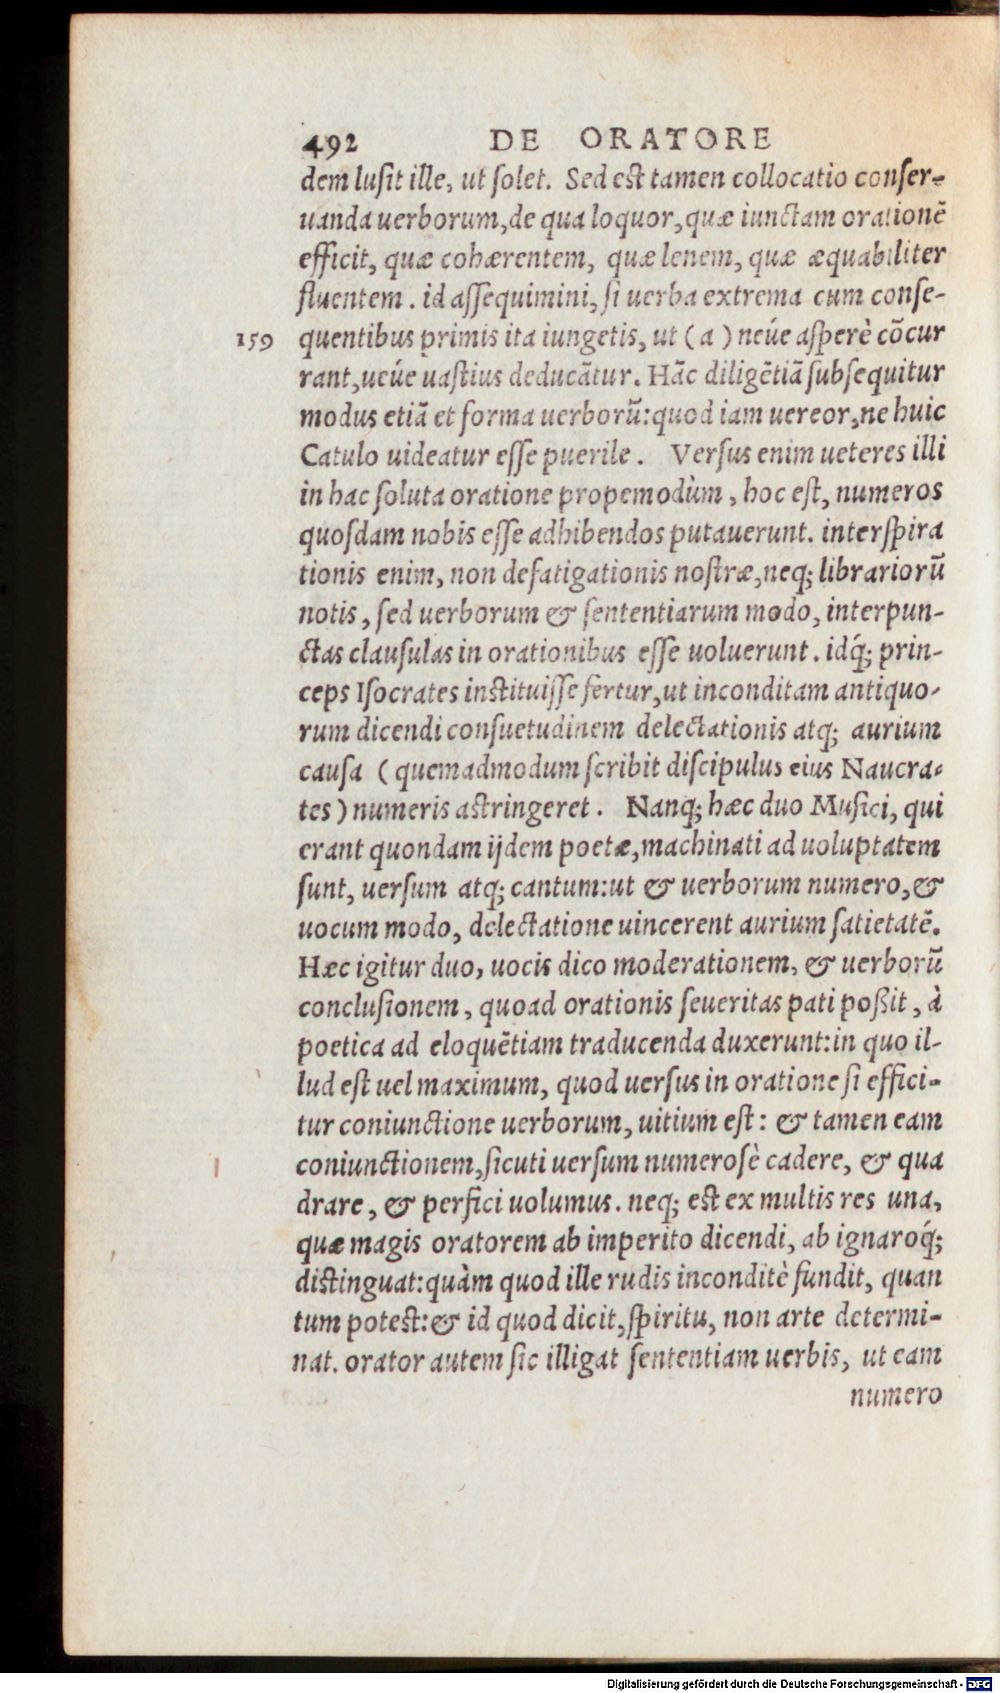 492 DE ORATORE
dem lusit ille, ut solet. Sed est tamen collocatio conser-
uanda uerborum, de qua loquor, quæ iunctam orationē
efficit, quæ cohærentem, quæ lenem, quæ æquabiliter
fluentem. id assequimini, si uerba extrema cum conse-
159 quentibus primis ita iungetis, ut (a) neúe asperè cōcur
rant, ueúe uastius deducātur. Hāc diligētiā subsequitur
modus etiā et forma uerborū: quod iam uereor, ne huic
Catulo uideatur esse puerile. Versus enim ueteres illi
in hac soluta oratione propemodùm, hoc est, numeros
quosdam nobis esse adhibendos putauerunt. interspira
tionis enim, non defatigationis nostræ, neq; librariorū
notis, sed uerborum & sententiarum modo, interpun-
ctas clausulas in orationibus esse uoluerunt. idq́; prin-
ceps Isocrates instituisse fertur, ut inconditam antiquo-
rum dicendi consuetudinem delectationis atq; aurium
causa (quemadmodum scribit discipulus eius Naucra-
tes) numeris astringeret. Nanq; hæc duo Musici, qui
erant quondam ijdem poetæ, machinati ad uoluptatem
sunt, uersum atq; cantum: ut & uerborum numero, &
uocum modo, delectatione uincerent aurium satietatē.
Hæc igitur duo, uocis dico moderationem, & uerborū
conclusionem, quoad orationis seueritas pati poßit, à
poetica ad eloquētiam traducenda duxerunt: in quo il-
lud est uel maximum, quod uersus in oratione si effici-
tur coniunctione uerborum, uitium est: & tamen eam
coniunctionem, sicuti uersum numerosè cadere, & qua
drare, & perfici uolumus. neq; est ex multis res una,
quæ magis oratorem ab imperito dicendi, ab ignaroq́;
distinguat: quàm quod ille rudis inconditè fundit, quan
tum potest: & id quod dicit, spiritu, non arte determi-
nat. orator autem sic illigat sententiam uerbis, ut eam
numero
Digitalisierung gefördert durch die Deutsche Forschungsgemeinschaft - DFG